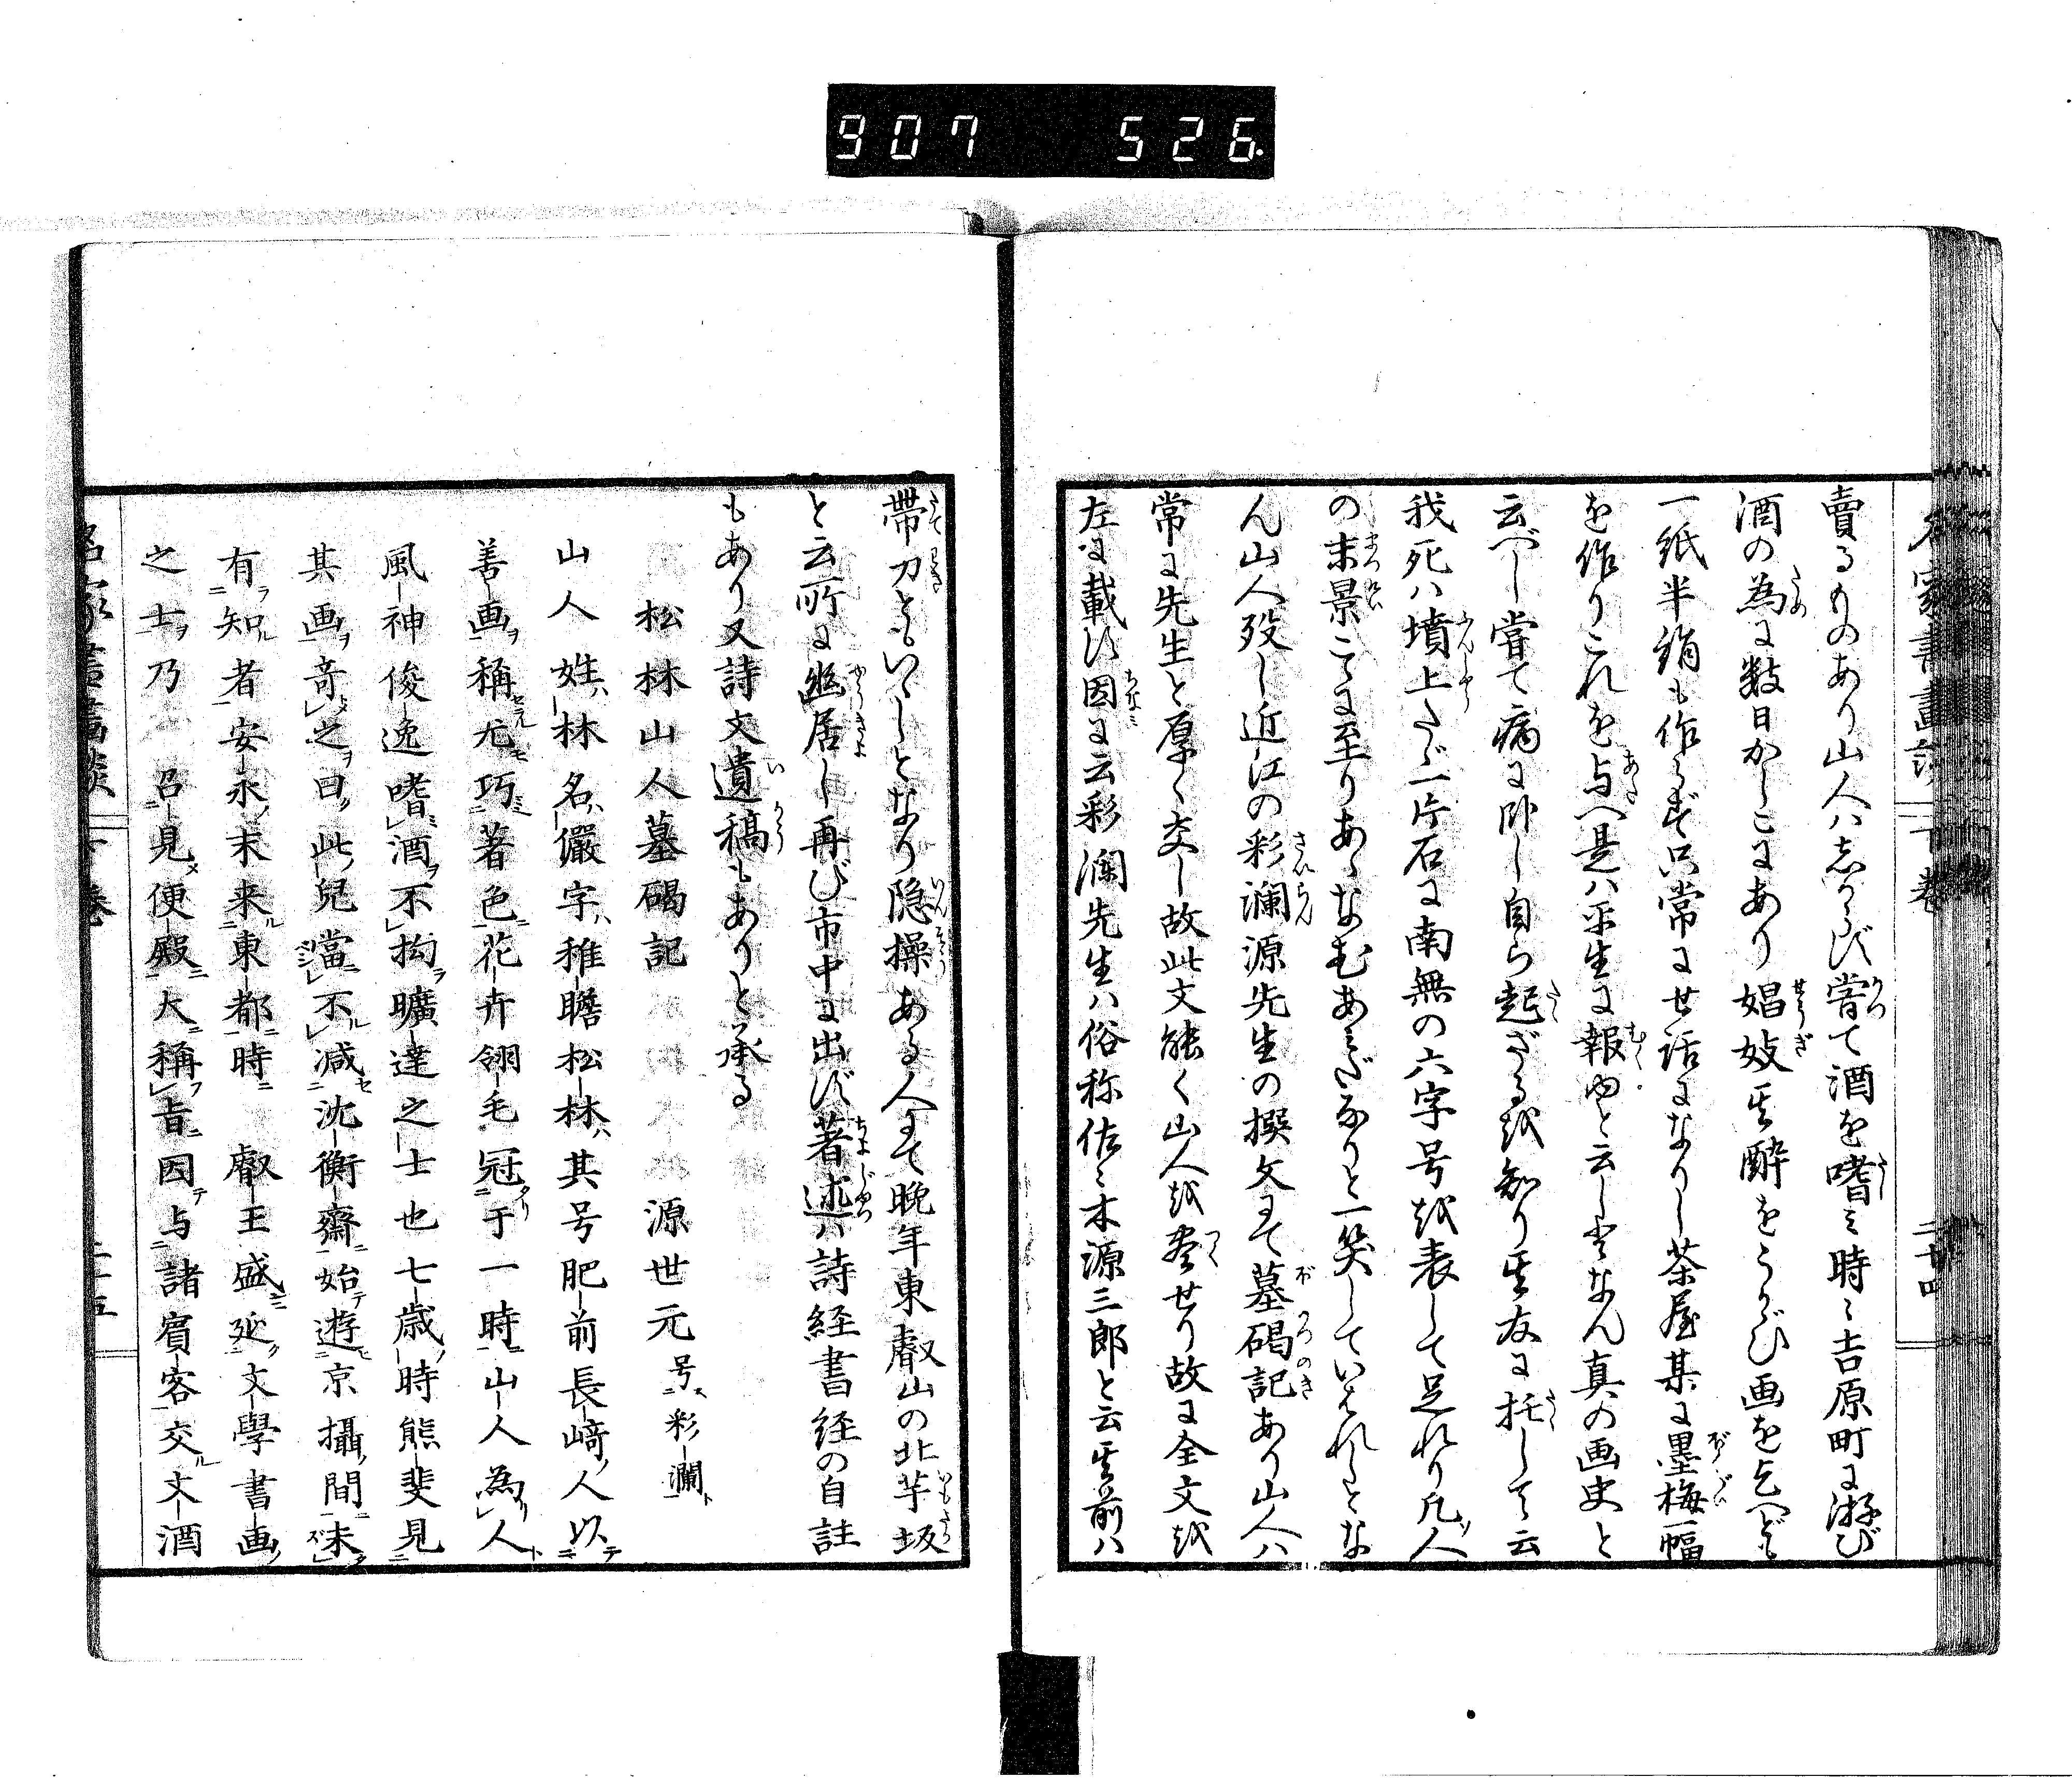 907 526
名家書畫談 下巻 二十四
賣るものあり山人ハ志からず嘗て酒を嗜ミ時々吉原町に游び
酒の為に数日かしこにあり娼妓其酔をうかゞひ画を乞へども
一紙半絹も作らず只常に世話になりし茶屋某に墨梅一幅
を作りこれを与へ是ハ平生に報ゆと云しとなん真の画史と
云べし嘗て病に臥し自ら起ざるを知り其友に托して云
我死ハ墳上たゞ一片石に南無の六字号を表して足れり凡人
の末景こゝに至りあゝなむあミだなりと一笑していはれしとな
ん山人歿し近江の彩瀾源先生の撰文にて墓碣記あり山人ハ
常に先生と厚く交し故此文能く山人を尽せり故に全文を
左に載す因に云彩瀾先生ハ俗称佐々木源三郎と云其前ハ
帯刀ともいゝしとなり隠操ある人にて晩年東叡山の北芋坂
と云所に幽居し再び市中に出ず著述ハ詩経書経の自註
もあり又詩文遺稿もありと承る
松林山人墓碣記 源世元号彩瀾
山人姓林名儼字稚瞻松林其号肥前長﨑人以
善画稱尤巧著色花卉翎毛冠于一時山人為人
風神俊逸嗜酒不拘曠達之士也七歳時熊斐見
其画竒之曰此兒當不減沈衡齋始遊京攝間未
有知者安永末来東都時 叡王盛延文學書画
之士乃 召見便殿大稱旨因与諸賓客交文酒
名家書畫談 下巻 二十五